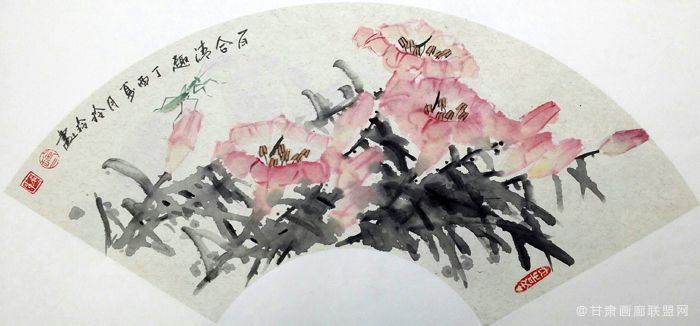 百合清趣丁酉夏月玲玲畫
@甘肃画廊联盟网